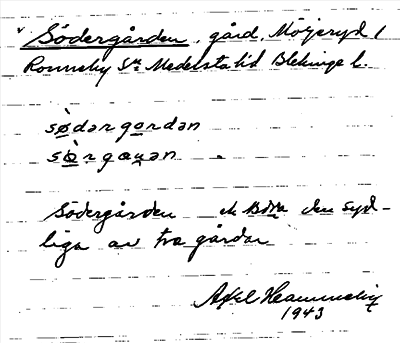 v Södergården, gård, Möljeryd 1
Ronneby Sn Medelstа hd Blekinge l.
södərgordən
sörgɑuən
Södergården den syd-
liga av två gårdar
Axel Hammneby
1943